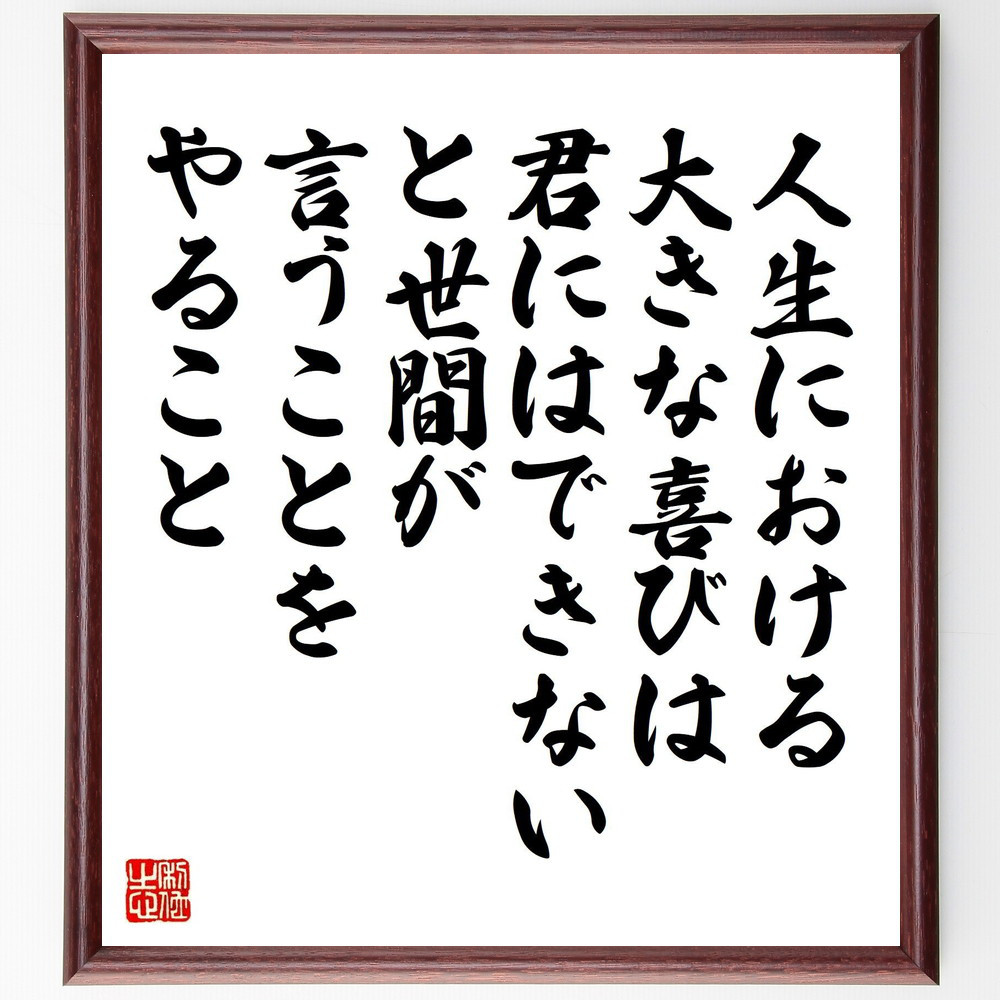 人生における
大きな喜びは
君にはできない
と世間が
言うことを
やること